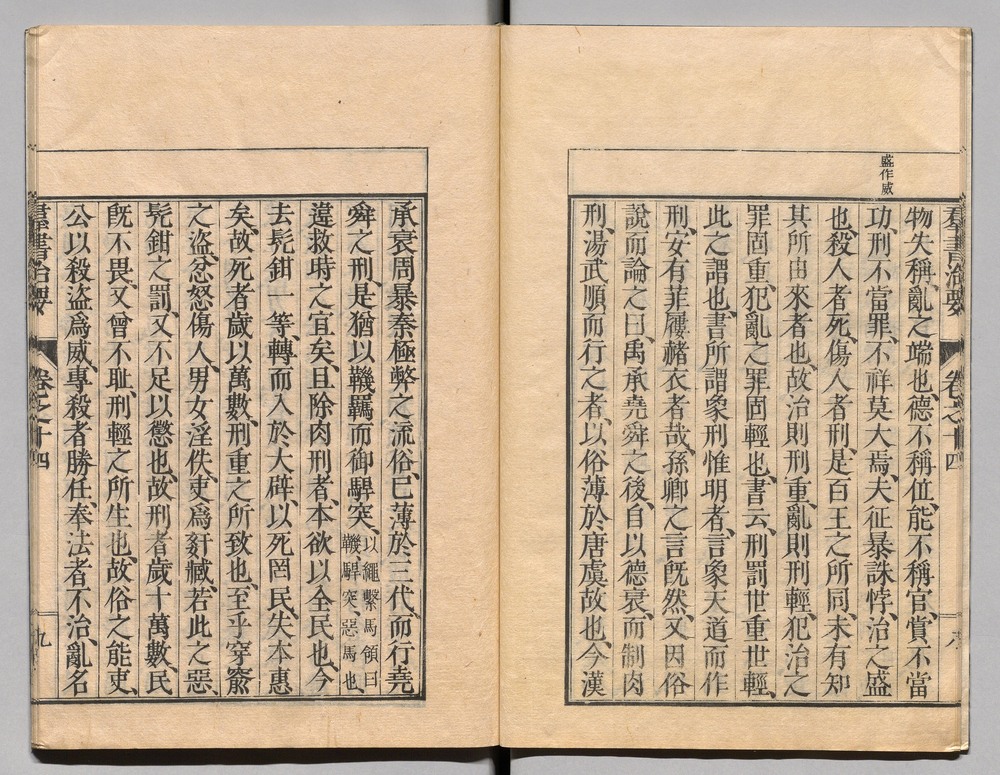 盛作威
羣書治要 卷之十四 八
物失稱、亂之端也、德不稱位、能不稱官、賞不當
功、刑不當罪、不祥莫大焉、夫征暴誅悖、治之盛
也、殺人者死、傷人者刑、是百王之所同、未有知
其所由來者也、故治則刑重、亂則刑輕、犯治之
罪固重、犯亂之罪固輕也、書云、刑罰世重世輕、
此之謂也、書所謂象刑惟明者、言象天道而作
刑、安有菲屨赭衣者哉、孫卿之言旣然、又因俗
說而論之曰、禹承堯舜之後、自以德衰、而制肉
刑、湯武順而行之者、以俗薄於唐虞故也、今漢
承衰周暴秦極弊之流俗、已薄於三代、而行堯
舜之刑、是猶以鞿羈而御駻突、以繩繫馬領曰
鞿、駻突、惡馬也、
違救時之宜矣、且除肉刑者、本欲以全民也、今
去髡鉗一等、轉而入於大辟、以死罔民、失本惠
矣、故死者歲以萬數、刑重之所致也、至乎穿窬
之盜、忿怒傷人、男女淫佚、吏爲姧臧、若此之惡、
髡鉗之罰、又不足以懲也、故刑者歲十萬數、民
旣不畏、又曾不耻、刑輕之所生也、故俗之能吏、
公以殺盜爲威、專殺者勝任、奉法者不治、亂名
羣書治要 卷之十四 九